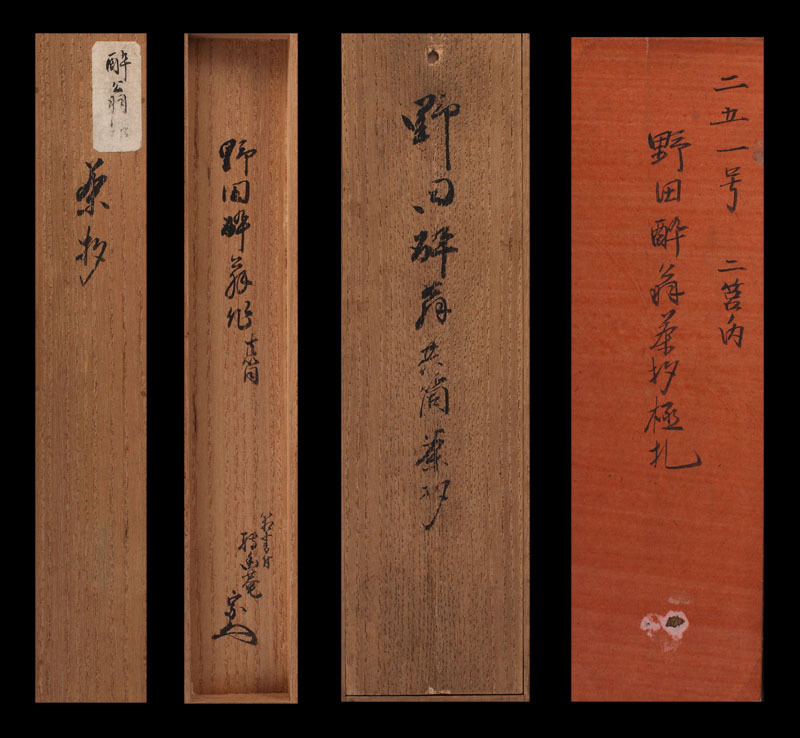 酔翁
茶杓
野田酔翁作
共筒
野田酔翁共筒茶杓
二五一号 二筥内
野田酔翁茶杓極札